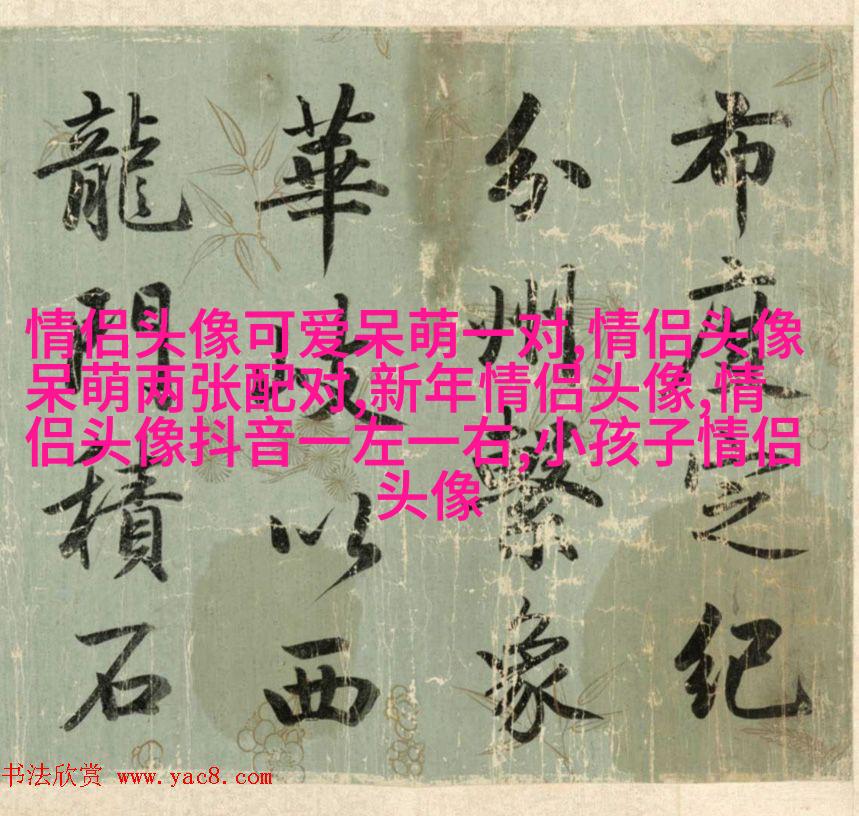 布度之紀
分州繫象
華以西
龍門積石
情侣头像可爱呆萌一对,情侣头像
呆萌两张配对,新年情侣头像,情
侣头像抖音一左一右,小孩子情侣
头像
书法欣赏 www.yac8.com